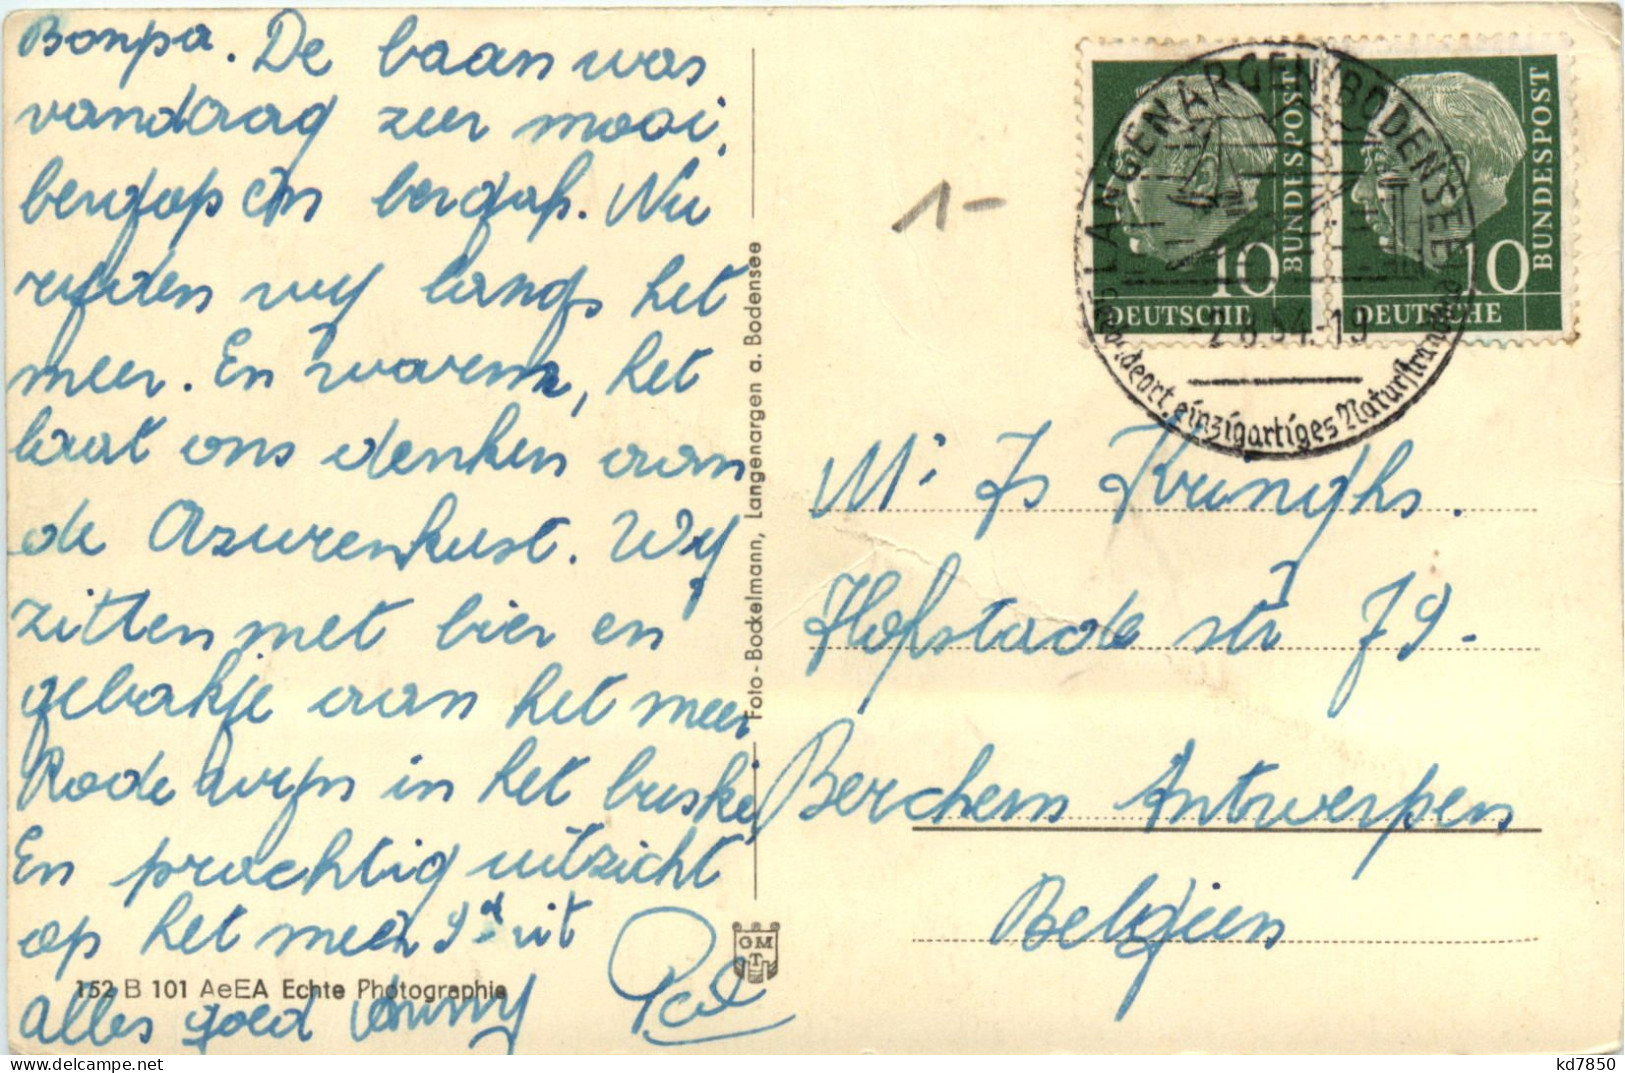 Bonpa. De baan was
vandaag zeer mooi,
bergop en bergaf. Nu
ryden wy langs het
meer. En warem, het
laat ons denken aan
de Azurenkust. Wy
zitten met bier en
gebakje aan het meer
Rode wyn in het buske,
En prachtig uitzicht
op het meer uit
alles goed
152 B 101 AeEA Echte Photographie
Foto-Bockelmann, Langenargen a. Bodensee
GMT
1-
LANGENARGEN/BODENSEE
einzigartiges Naturstrand
-2.8.54.-19
10
DEUTSCHE
BUNDESPOST
10
DEUTSCHE
BUNDESPOST
Mr Js Krunghs.
Hofstade str 79-
Berchem Antwerpen
Belgien
delcampe.net
kd7850